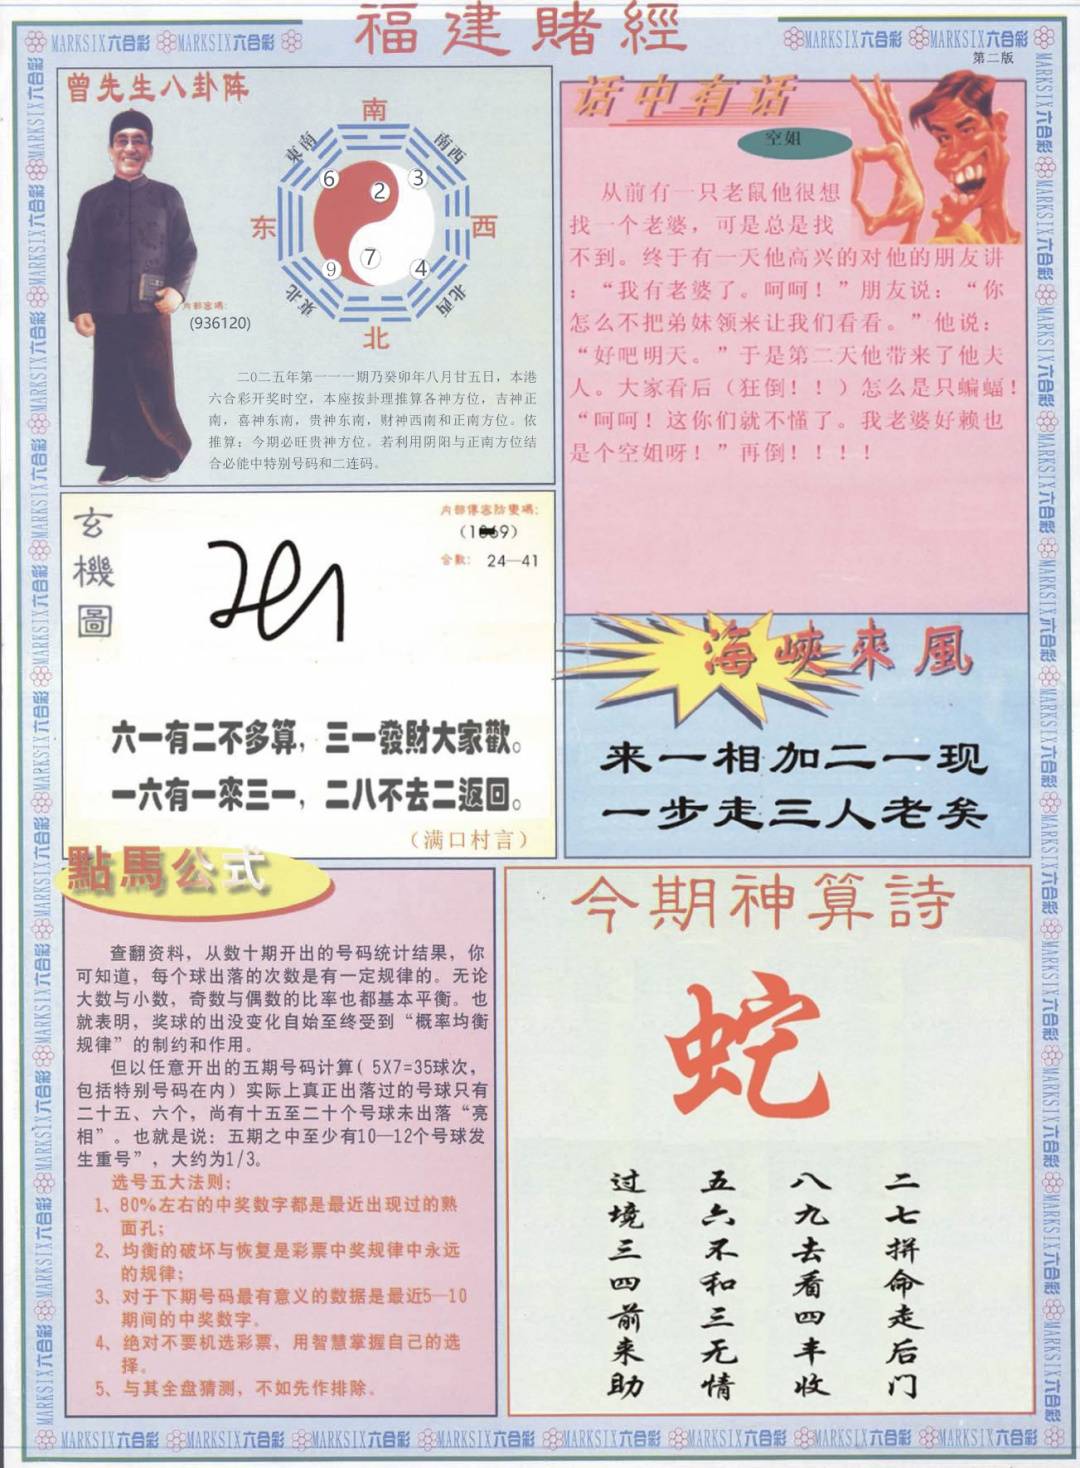 福建賭經
MARKSIX六合彩 MARKSIX六合彩
MARKSIX六合彩 MARKSIX六合彩
第二版
曾先生八卦阵
南
東南
南西
6
2
3
东
西
9
7
4
東北
北西
北
内部密碼:
(936120)
二0二五年第一一一期乃癸卯年八月廿五日，本港
六合彩开奖时空，本座按卦理推算各神方位，吉神正
南，喜神东南，贵神东南，财神西南和正南方位。依
推算：今期必旺贵神方位。若利用阴阳与正南方位结
合必能中特别号码和二连码。
话中有话
空姐
从前有一只老鼠他很想
找一个老婆，可是总是找
不到。终于有一天他高兴的对他的朋友讲
：“我有老婆了。呵呵！”朋友说：“你
怎么不把弟妹领来让我们看看。”他说：
“好吧明天。”于是第二天他带来了他夫
人。大家看后（狂倒！！）怎么是只蝙蝠！
“呵呵！这你们就不懂了。我老婆好赖也
是个空姐呀！”再倒！！！！
玄機圖
内部傳密防變碼:
合數: 24—41
六一有二不多算，三一發財大家歡。
一六有一來三一，二八不去二返回。
（满口村言）
海峽來風
来一相加二一现
一步走三人老矣
點馬公式
查翻资料，从数十期开出的号码统计结果，你
可知道，每个球出落的次数是有一定规律的。无论
大数与小数，奇数与偶数的比率也都基本平衡。也
就表明，奖球的出没变化自始至终受到“概率均衡
规律”的制约和作用。
但以任意开出的五期号码计算( 5X7=35球次，
包括特别号码在内）实际上真正出落过的号球只有
二十五、六个，尚有十五至二十个号球未出落“亮
相”。也就是说：五期之中至少有10—12个号球发
生重号”，大约为1/3。
选号五大法则：
1、80%左右的中奖数字都是最近出现过的熟
面孔；
2、均衡的破坏与恢复是彩票中奖规律中永远
的规律；
3、对于下期号码最有意义的数据是最近5—10
期间的中奖数字。
4、绝对不要机选彩票，用智慧掌握自己的选
择。
5、与其全盘猜测，不如先作排除。
今期神算詩
蛇
二七拼命走后门
八九去看四丰收
五六不和三无情
过境三四前来助
MARKSIX六合彩 MARKSIX六合彩 MARKSIX六合彩 MARKSIX六合彩 MARKSIX六合彩 MARKSIX六合彩 MARKSIX六合彩 MARKSIX六合彩